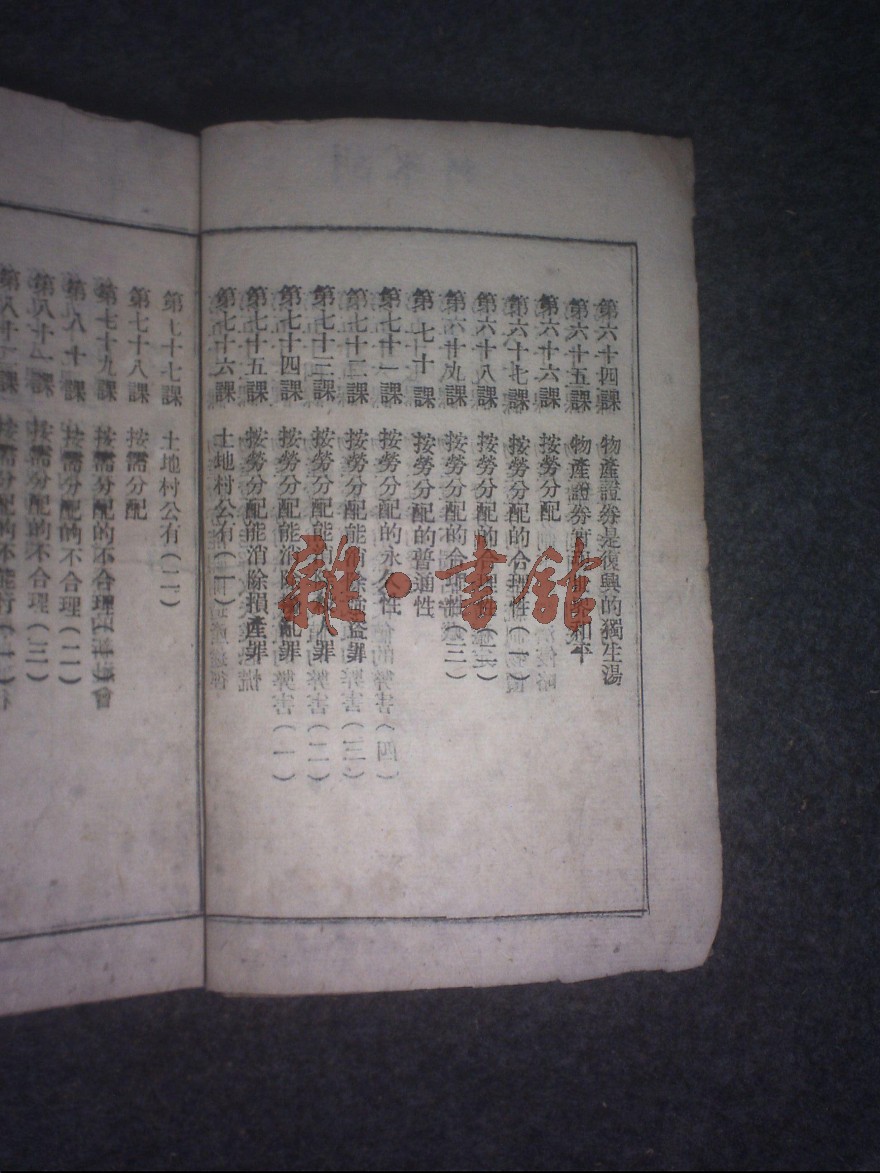 第六十四課 物產證券是復興的獨生湯
第六十五課 物產證券
第六十六課 按勞分配
第六十七課 按勞分配的合理性（一）
第六十八課 按勞分配的合理性（二）
第六十九課 按勞分配的合理性（三）
第七十課 按勞分配的普通性
第七十一課 按勞分配的永久性
第七十二課 按勞分配能消除
第七十三課 按勞分配能消除
第七十四課 按勞分配能消除
第七十五課 按勞分配能消除損產罪
第七十六課 土地村公有（一）
第七十七課 土地村公有（二）
第七十八課 按需分配
第七十九課 按需分配的不合理
第八十課 按需分配的不合理（二）
第八十一課 按需分配的不合理（三）
第八十二課 按需分配的不能行（一）
雜·書館